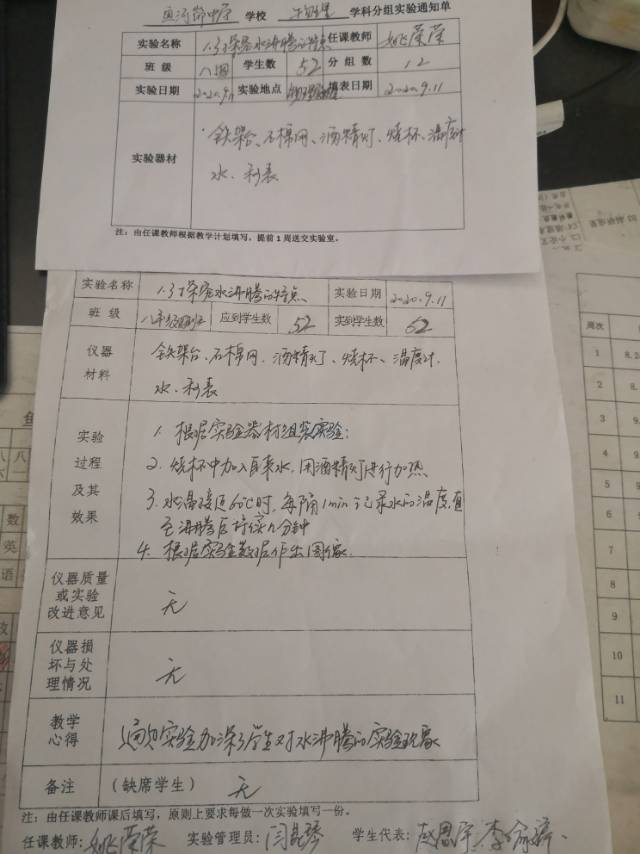 学校 物理 学科分组实验通知单
实验名称 1.3探究水沸腾的特点 任课教师 姚荣荣
班级 八四 学生数 52 分组数 12
实验日期 2020.9.11 实验地点 填表日期 2020.9.11
实验器材
铁架台、石棉网、酒精灯、烧杯、温度计
水、秒表
注:由任课教师根据教学计划填写,提前1周送交实验室。
实验名称 1.3探究水沸腾的特点 实验日期 2020.9.11
班级 八年级四班 应到学生数 52 实到学生数 52
仪器材料
铁架台、石棉网、酒精灯、烧杯、温度计
水、秒表
实验过程及其效果
1. 根据实验器材组装实验;
2. 烧杯中加入自来水,用酒精灯进行加热
3. 水温接近60℃时,每隔1min记录水的温度,直
至沸腾后持续几分钟
4. 根据实验数据作出图像
仪器质量或实验改进意见
无
仪器损坏与处理情况
无
教学心得
通过实验加深了学生对水沸腾的实验现象
备注 (缺席学生) 无
注:由任课教师课后填写,原则上要求每做一次实验填写一份。
任课教师:姚荣荣 实验管理员: 学生代表:
周次
1 8.2
2 8.
3 9.
4 9
5 9
6
7
8
9
10
11
鱼
八 八
数
英
语